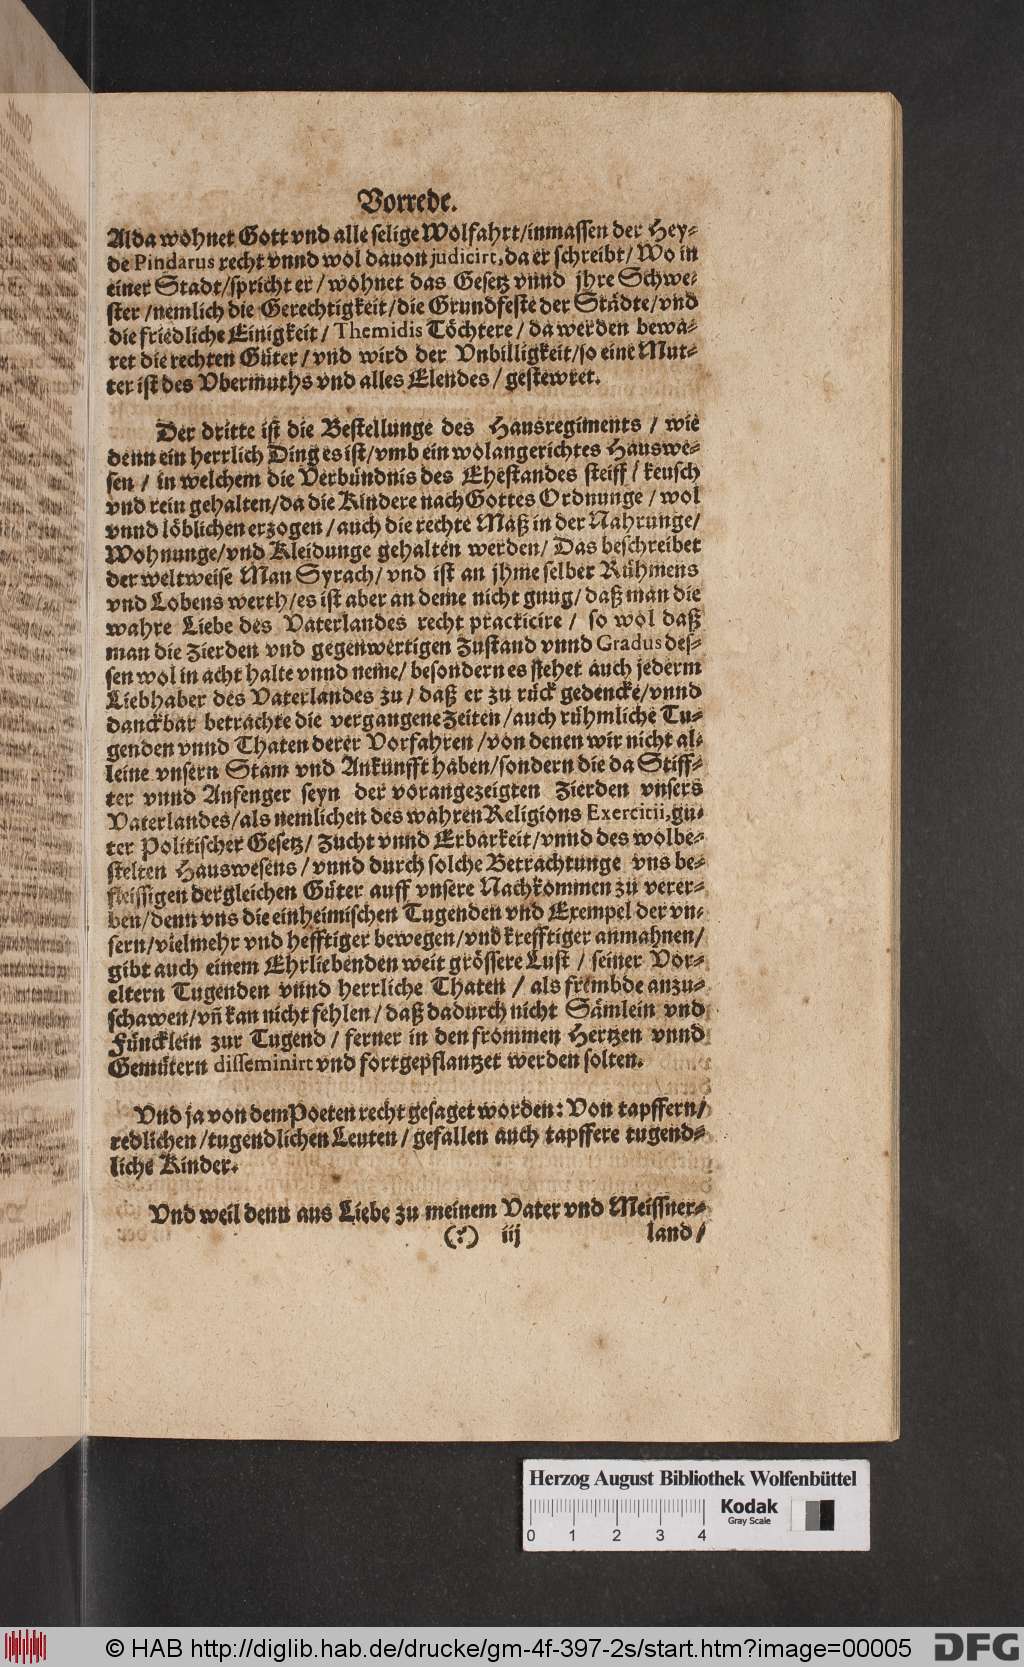 Vorrede.
Alda wohnet Gott vnd alle selige Wolfahrt/inmassen der Hey-
de Pindarus recht vnnd wol dauon judicirt, da er schreibt/ Wo in
einer Stadt/spricht er/ wohnet das Gesetz vnnd jhre Schwe-
ster/nemlich die Gerechtigkeit/die Grundfeste der Städte/vnd
die friedliche Einigkeit/ Themidis Töchtere/ da werden bewa-
ret die rechten Güter/ vnd wird der Vnbilligkeit/so eine Mut-
ter ist des Vbermuths vnd alles Elendes/ gestewret.
Der dritte ist die Bestellunge des Hausregiments/ wie
denn ein herrlich Ding es ist/vmb ein wolangerichtes Hauswe-
sen/ in welchem die Verbündnis des Ehestandes steiff/ keusch
vnd rein gehalten/da die Kindere nach Gottes Ordnunge/ wol
vnnd löblichen erzogen/ auch die rechte Maß in der Nahrunge/
Wohnunge/vnd Kleidunge gehalten werden/ Das beschreibet
der weltweise Man Syrach/ vnd ist an jhme selber Rühmens
vnd Lobens werth/es ist aber an deme nicht gnug/ daß man die
wahre Liebe des Vaterlandes recht practicire/ so wol daß
man die Zierden vnd gegenwertigen Zustand vnnd Gradus des-
sen wol in acht halte vnnd neme/ besondern es stehet auch jederm
Liebhaber des Vaterlandes zu/ daß er zu rück gedencke/vnnd
danckbar betrachte die vergangene Zeiten/auch rühmliche Tu-
genden vnnd Thaten derer Vorfahren/von denen wir nicht al-
leine vnsern Stam vnd Ankunfft haben/sondern die da Stiff-
ter vnnd Anfenger seyn der vorangezeigten Zierden vnsers
Vaterlandes/als nemlichen des wahren Religions Exercitii, gu-
ter Politischer Gesetz/ Zucht vnnd Erbarkeit/vnnd des wolbe-
stelten Hauswesens/vnnd durch solche Betrachtunge vns be-
fleissigen dergleichen Güter auff vnsere Nachkommen zu verer-
ben/denn vns die einheimischen Tugenden vnd Exempel der vn-
sern/vielmehr vnd hefftiger bewegen/vnd krefftiger anmahnen/
gibt auch einem Ehrliebenden weit grössere Lust/ seiner Vor-
eltern Tugenden vnnd herrliche Thaten/ als frembde anzu-
schawen/vñ kan nicht fehlen/ daß dadurch nicht Sämlein vnd
Füncklein zur Tugend/ ferner in den frommen Hertzen vnnd
Gemütern disseminirt vnd fortgepflantzet werden solten.
Vnd ja von dem Poeten recht gesaget worden: Von tapffern/
redlichen/tugendlichen Leuten/ gefallen auch tapffere tugend-
liche Kinder.
Vnd weil denn aus Liebe zu meinem Vater vnd Meissner-
(?) iij land/
Herzog August Bibliothek Wolfenbüttel
Kodak
Gray Scale
0 1 2 3 4
© HAB http://diglib.hab.de/drucke/gm-4f-397-2s/start.htm?image=00005
DFG